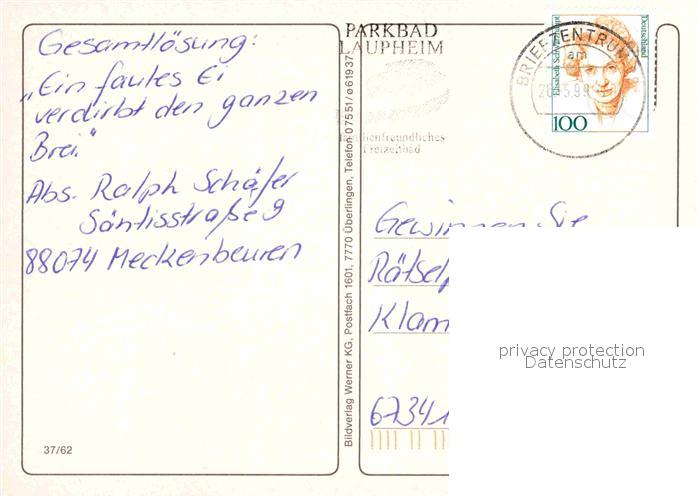 Gesamtlösung:
„Ein faules Ei
verdirbt den ganzen
Brei."
Abs. Ralph Schäfer
Säntisstraße 9
88074 Meckenbeuren
37/62
Bildverlag Werner KG, Postfach 1601, 7770 Überlingen, Telefon 0 75 51 / 6 19 37
PARKBAD
LAUPHEIM
familienfreundliches
Freizeitbad
BRIEFZENTRUM
am
Elisabeth Schwarzhaupt
Deutschland
100
Gewinnen Sie
67341
privacy protection
Datenschutz